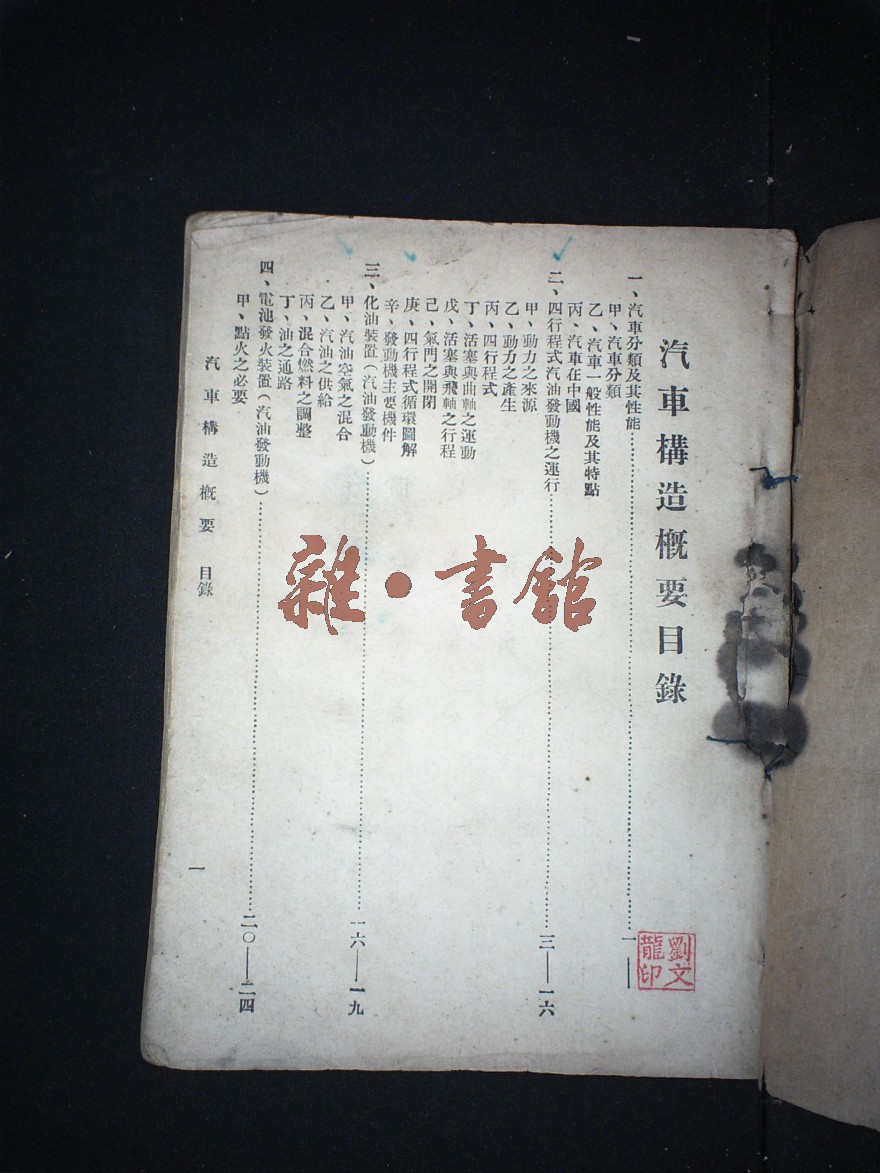 汽車構造概要目錄
一、汽車分類及其性能…………一—
甲、汽車分類
乙、汽車一般性能及其特點
丙、汽車在中國
二、四行程式汽油發動機之運行…………三—一六
甲、動力之來源
乙、動力之產生
丙、四行程式
丁、活塞與曲軸之運動
戊、活塞與飛軸之行程
己、氣門之開閉
庚、四行程式循環圖解
辛、發動機主要機件
三、化油裝置(汽油發動機)…………一六—一九
甲、汽油空氣之混合
乙、汽油之供給
丙、混合燃料之調整
丁、油之通路
四、電池發火裝置(汽油發動機)…………二〇—二四
甲、點火之必要
汽車構造概要 目錄
一
劉文龍印
雜·書館